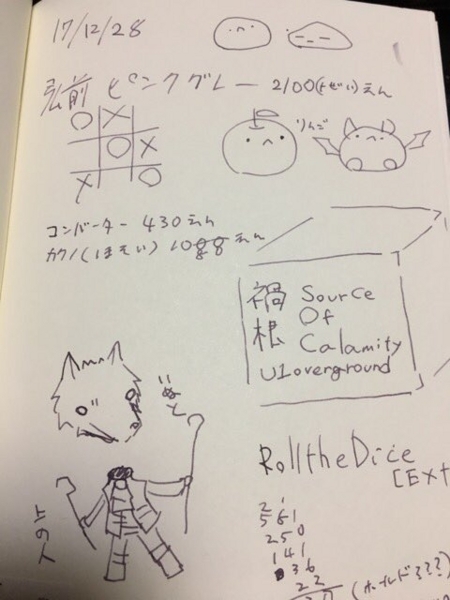 17/12/28
弘前 ピンクグレー 2100(ぜい)えん
O X
O X
X O
りんご
コンバーター 430えん
カクノ(ほそい) 10
えん
禍 Source
Of
根 Calamity
U1overground
いぬと
RolltheDice
[Ext
561
250
141
36
22